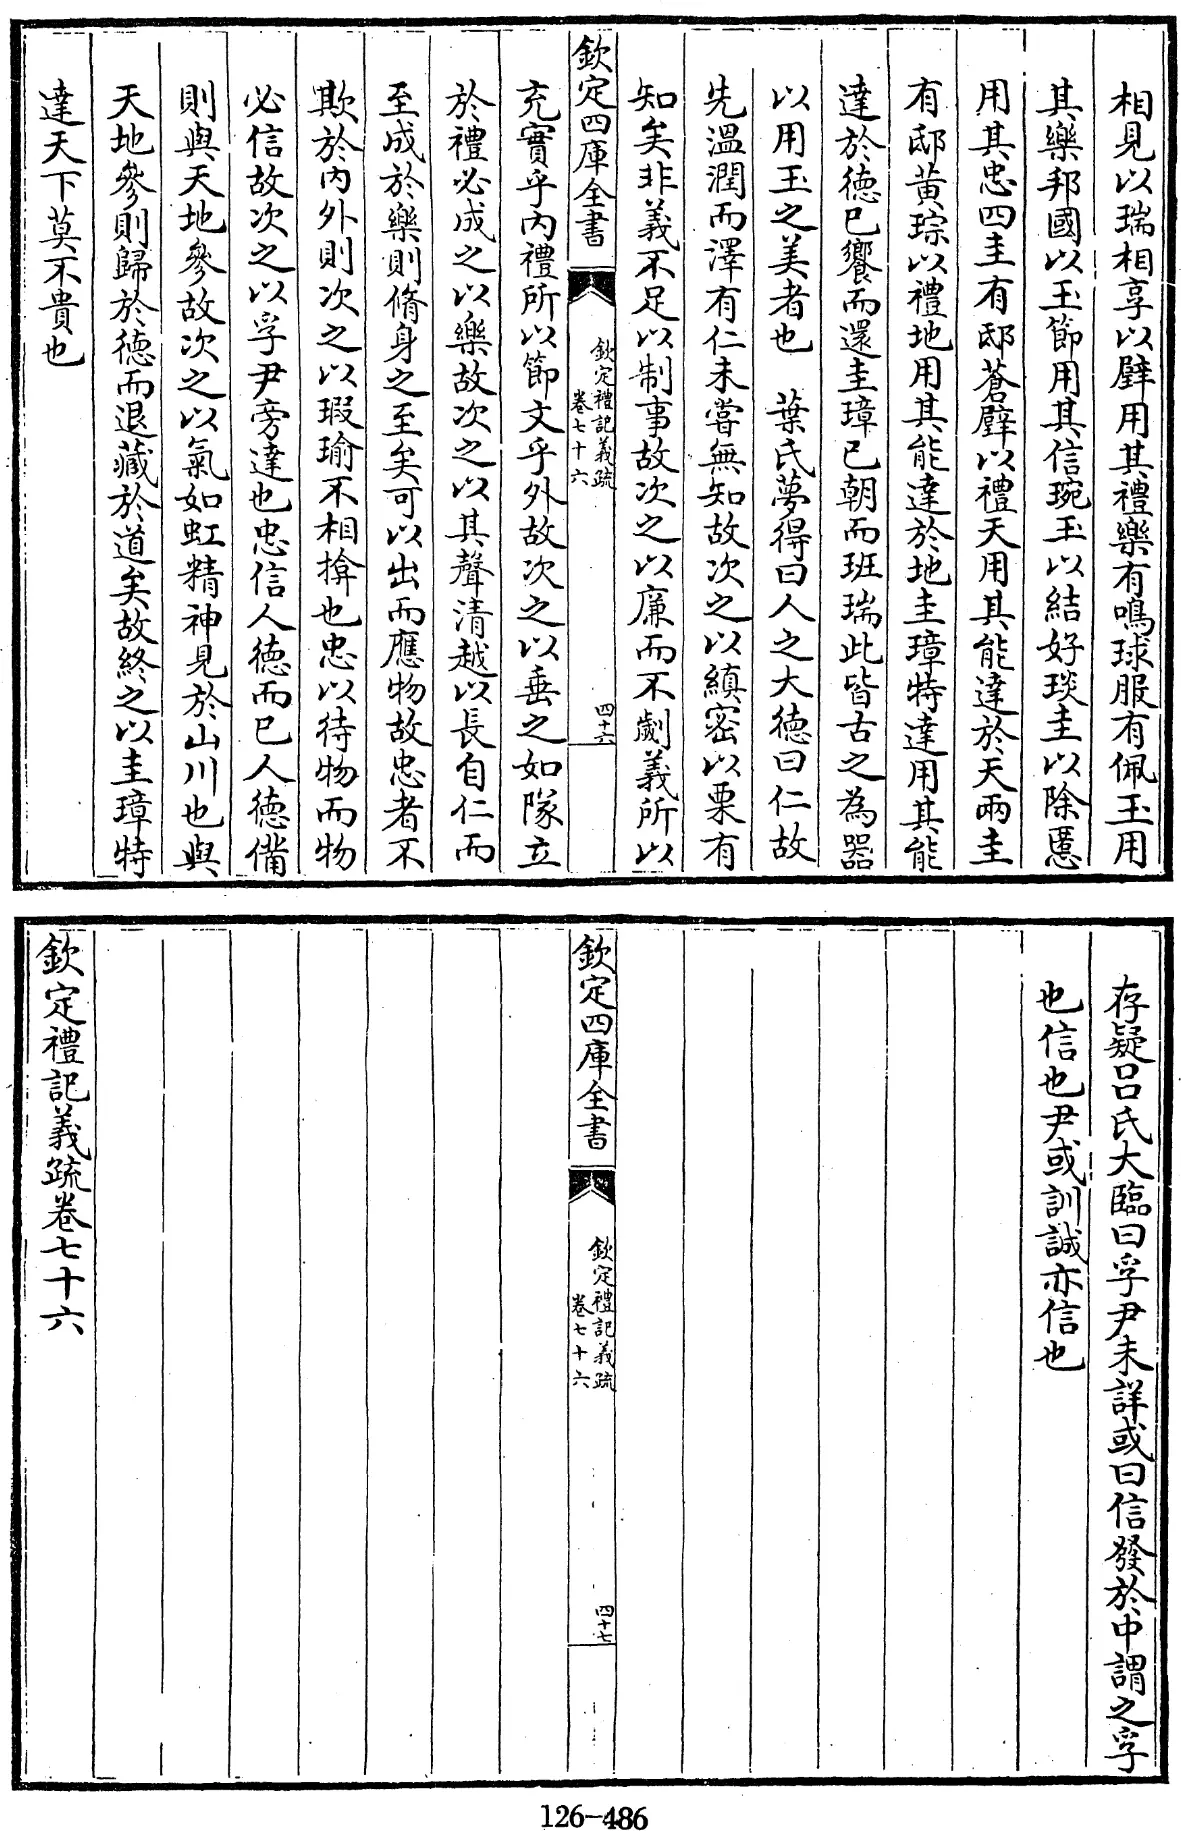 相見以瑞相享以璧用其禮樂有鳴球服有佩玉用
其樂邦國以玉節用其信琬玉以結好琰圭以除慝
用其忠四圭有邸蒼璧以禮天用其能達於天兩圭
有邸黃琮以禮地用其能達於地圭璋特達用其能
達於徳已饗而還圭璋已朝而班瑞此皆古之為器
以用玉之美者也　葉氏夢得曰人之大徳曰仁故
先溫潤而澤有仁未嘗無知故次之以縝密以栗有
知矣非義不足以制事故次之以廉而不劌義所以
欽定四庫全書
欽定禮記義疏
卷七十六
四十六
充實乎内禮所以節文乎外故次之以垂之如隊立
於禮必成之以樂故次之以其聲清越以長自仁而
至成於樂則脩身之至矣可以出而應物故忠者不
欺於内外則次之以瑕瑜不相揜也忠以待物而物
必信故次之以孚尹旁達也忠信人徳而已人徳備
則與天地參故次之以氣如虹精神見於山川也與
天地參則歸於徳而退藏於道矣故終之以圭璋特
達天下莫不貴也
存疑呂氏大臨曰孚尹未詳或曰信發於中謂之孚
也信也尹或訓誠亦信也
欽定四庫全書
欽定禮記義疏
卷七十六
四十七
欽定禮記義疏卷七十六
126-486